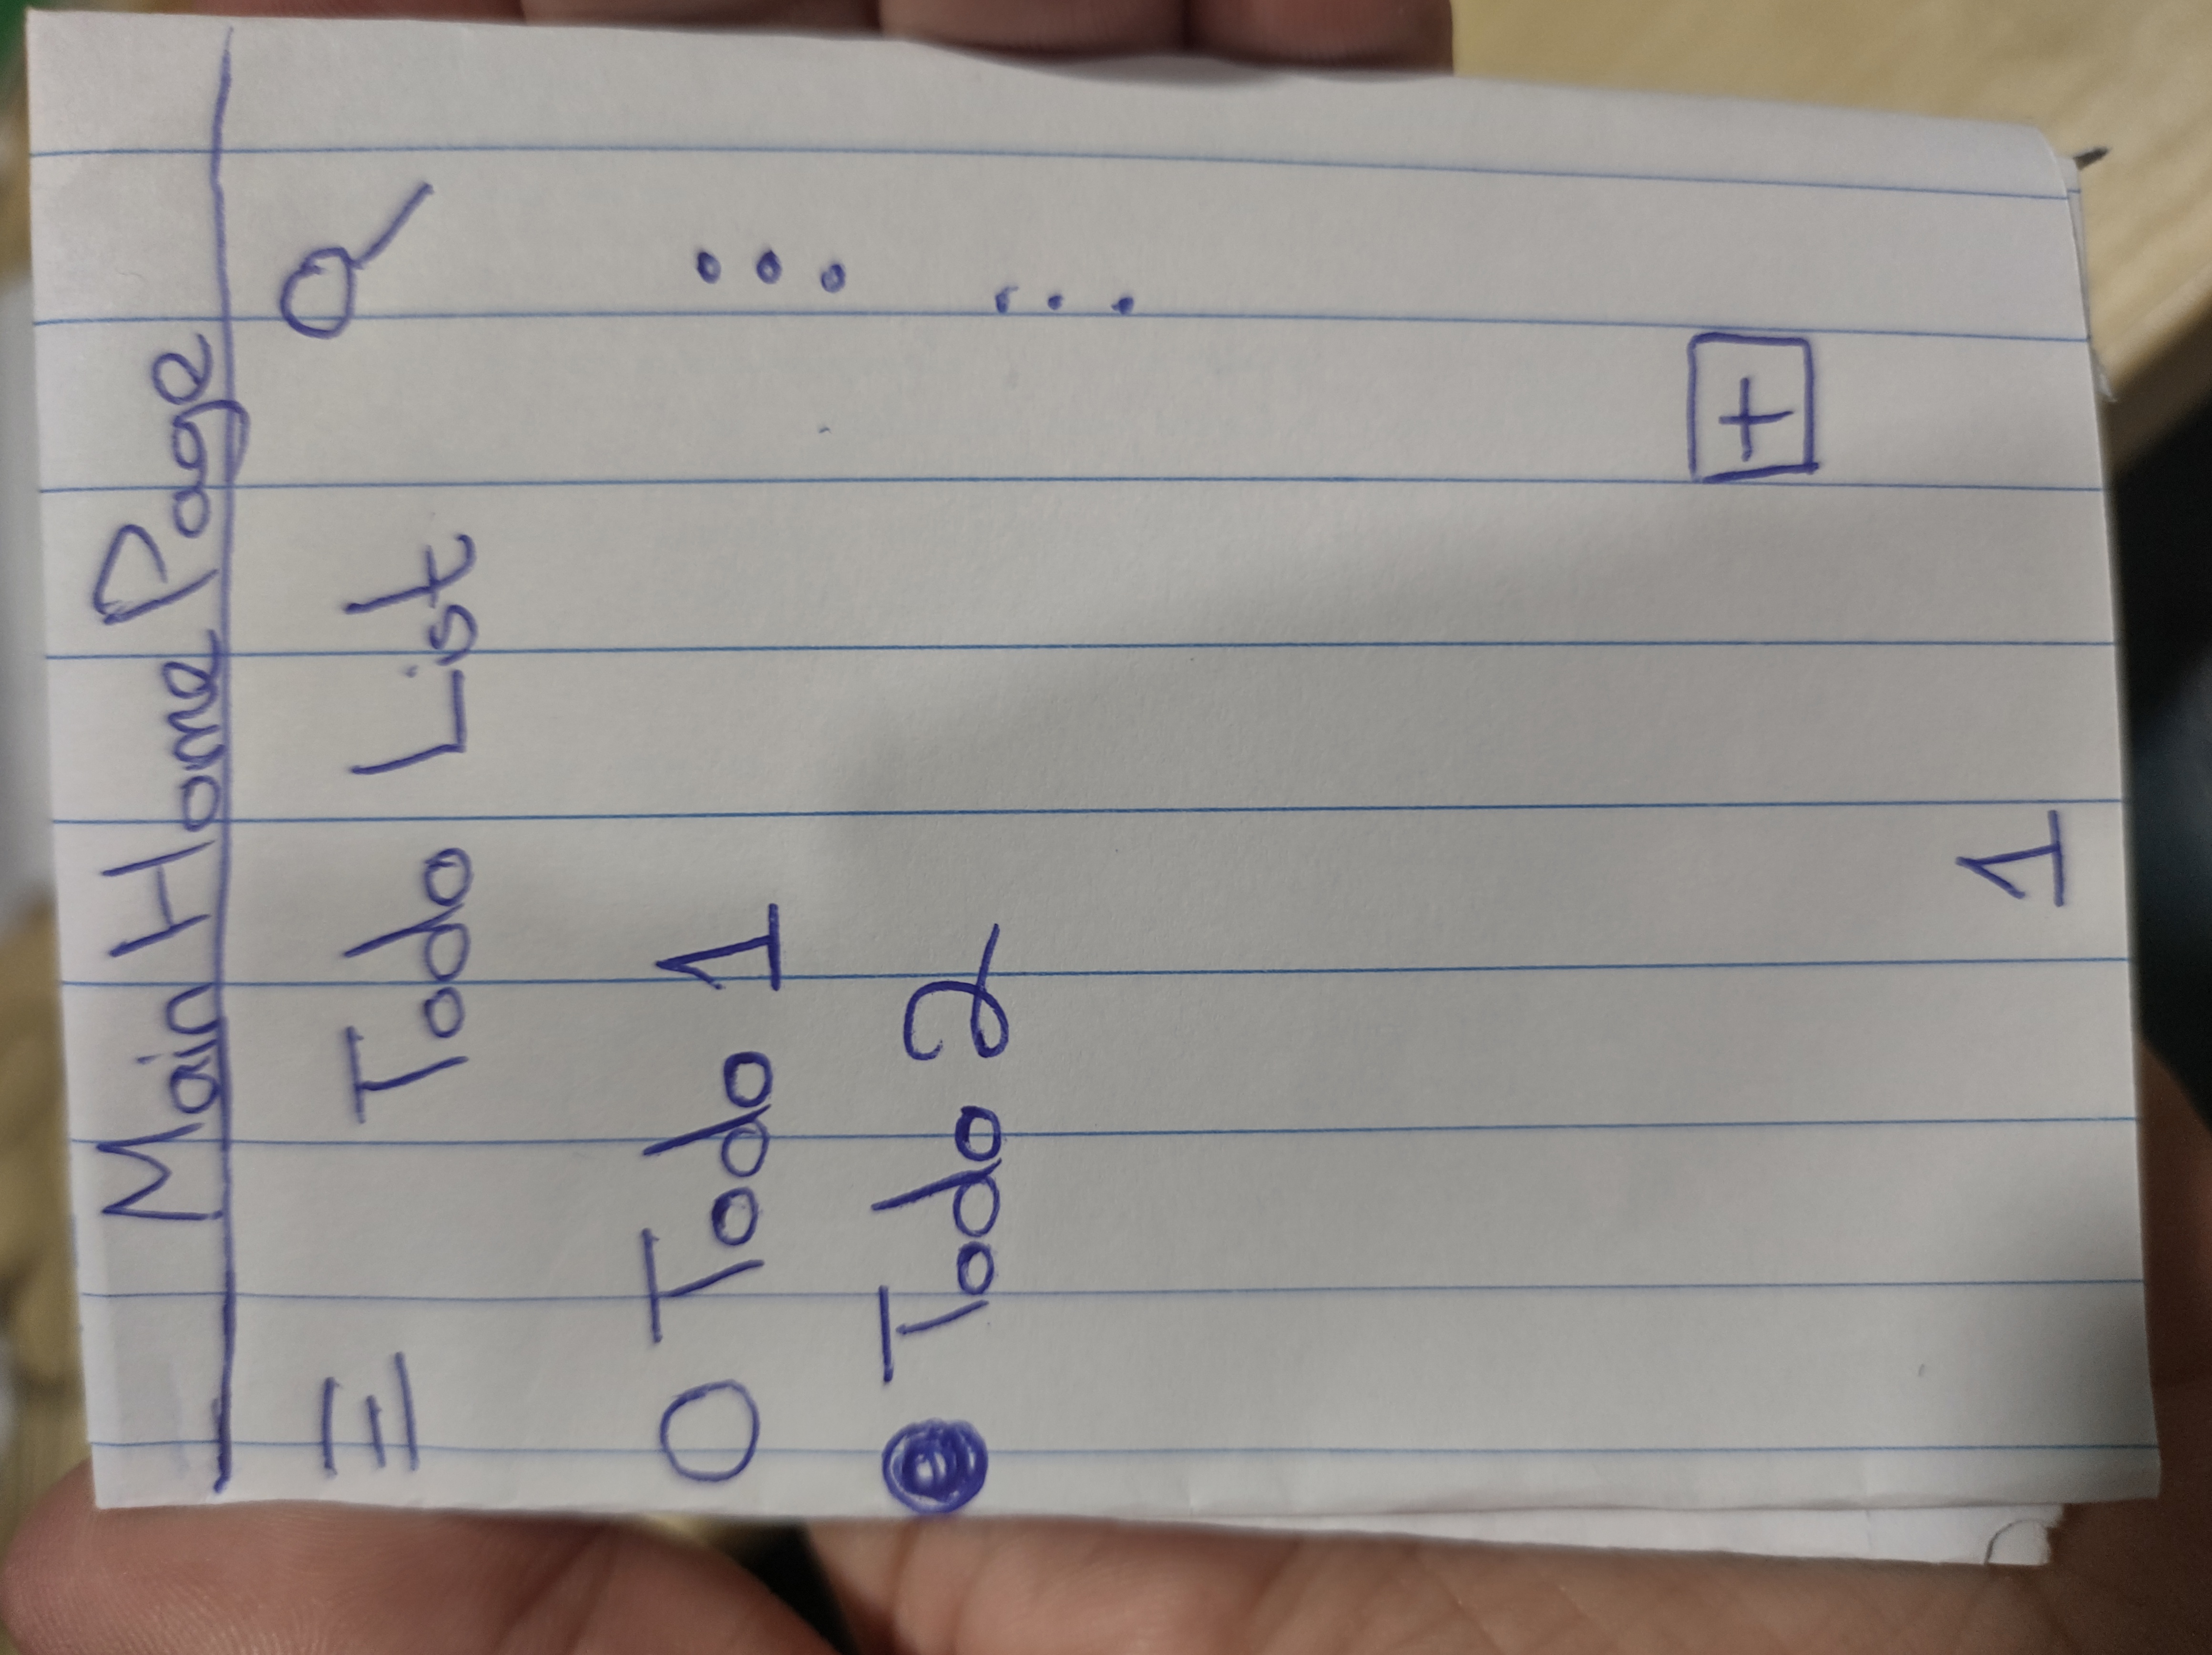 Main Home Page
Todo List
Todo 1
Todo 2
+
1